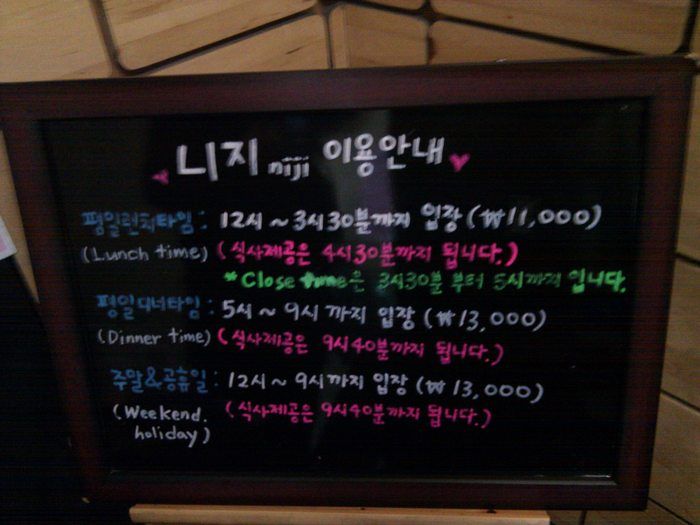 니지 niji 이용안내
평일런치타임: 12시~3시30분까지 입장 (₩11,000)
(Lunch time) (식사제공은 4시30분까지 됩니다.)
*Close time은 3시30분 부터 5시까지 입니다.
평일디너타임: 5시~9시까지 입장 (₩13,000)
(Dinner time) (식사제공은 9시40분까지 됩니다.)
주말&공휴일: 12시~9시까지 입장 (₩13,000)
(Weekend. (식사제공은 9시40분까지 됩니다.)
holiday)